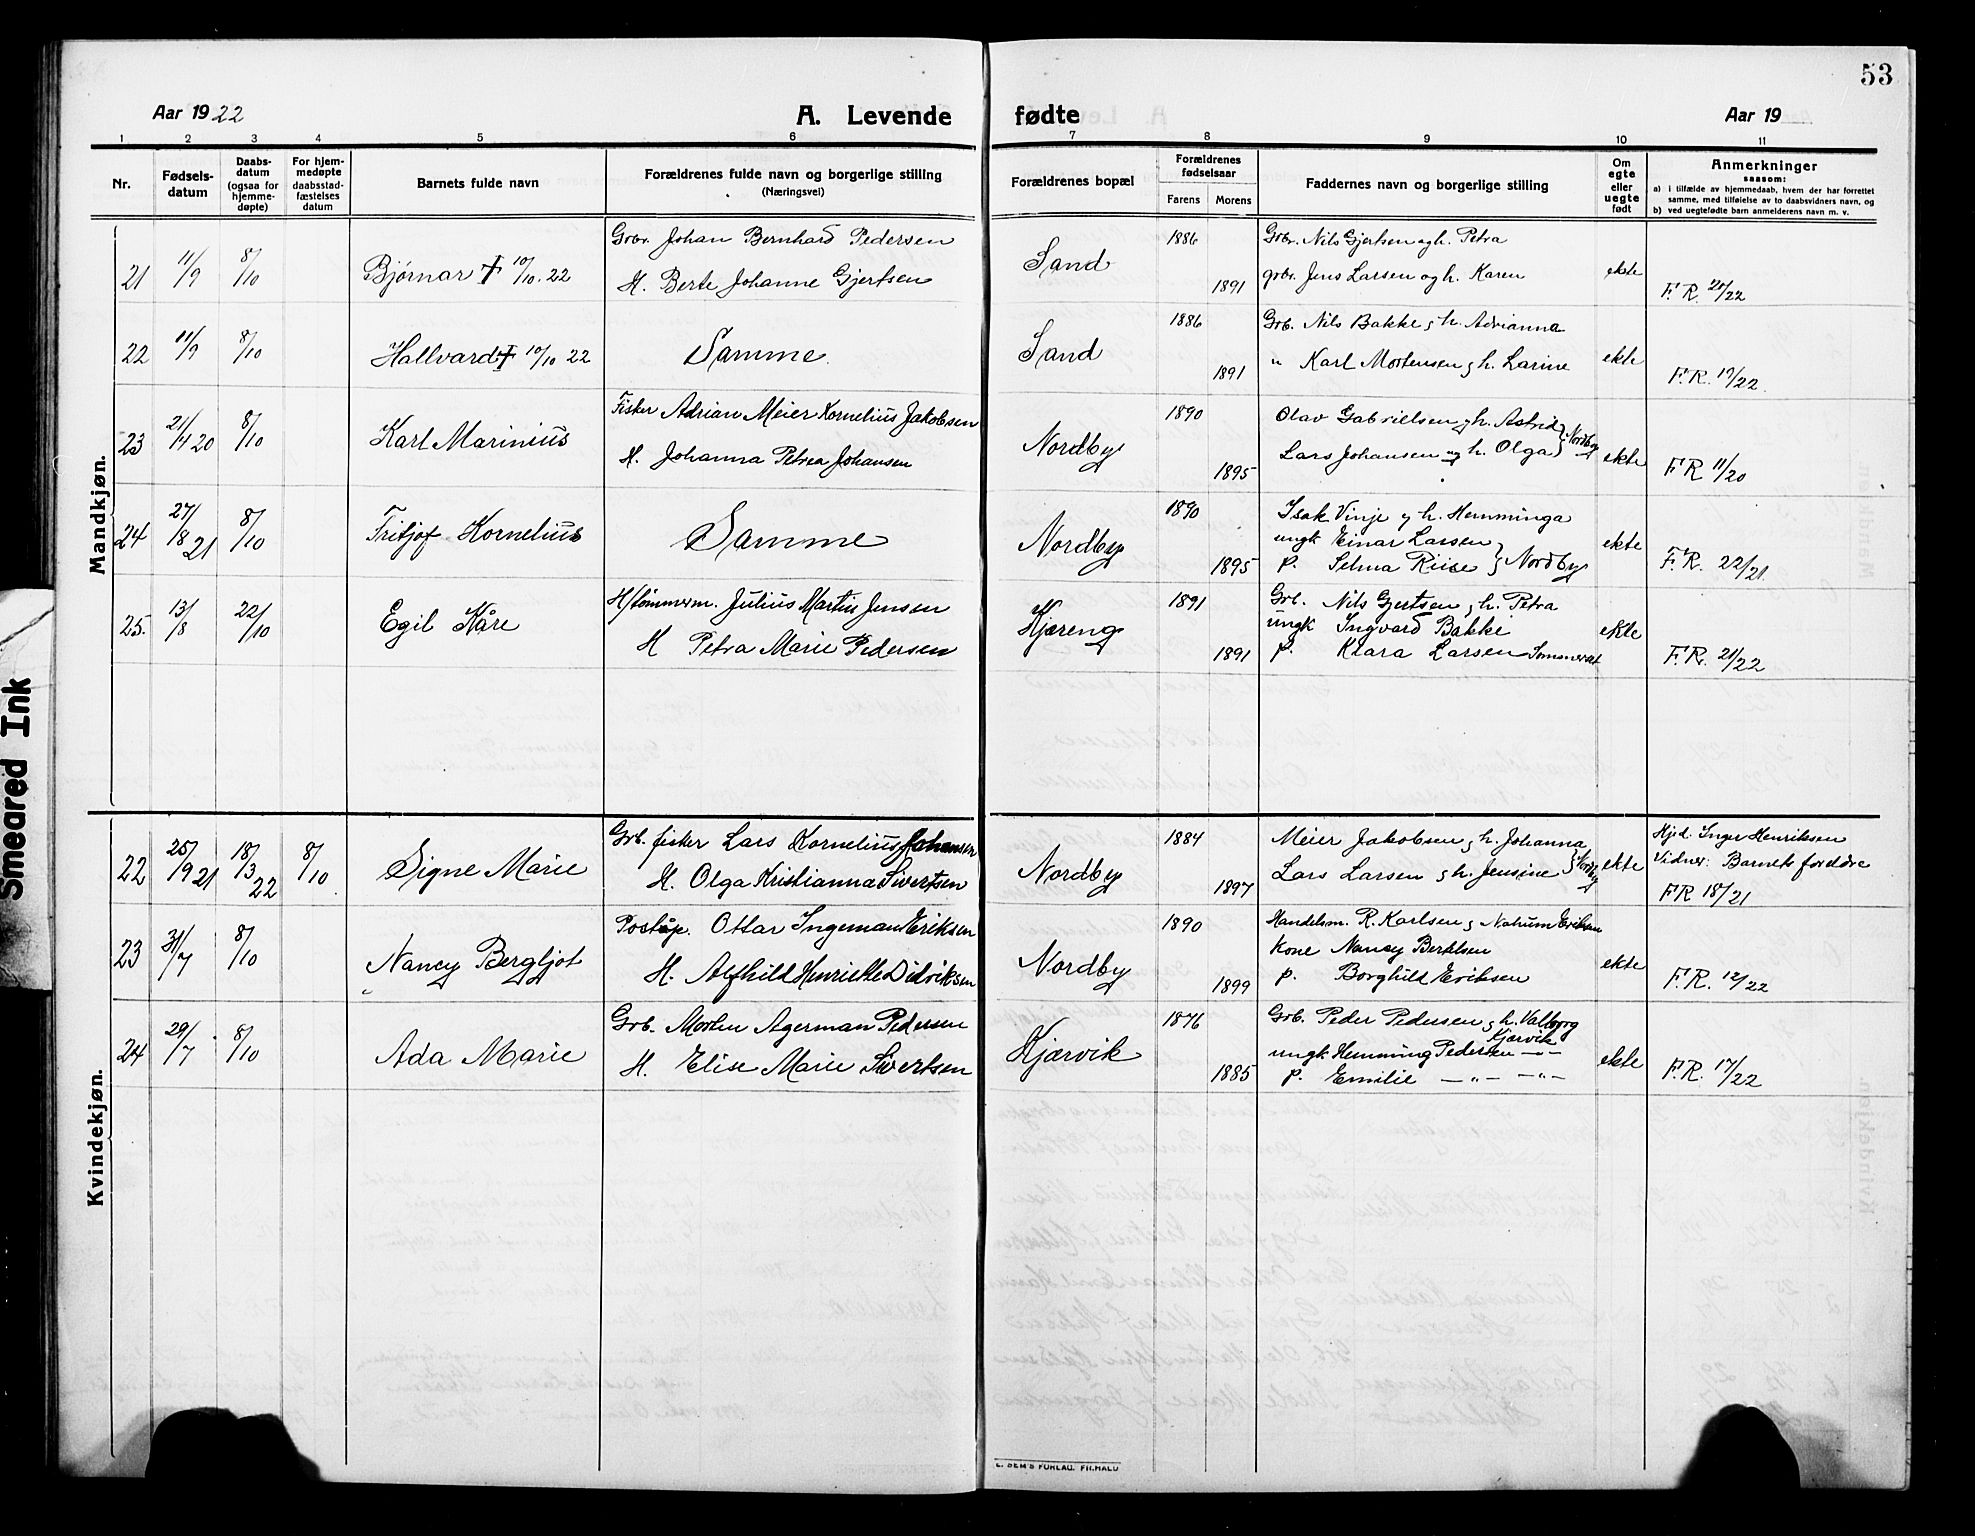 53
Aar 1922
A. Levende fødte
Aar 19
1 2 3 4 5 6 7 8 9 10 11
Nr.
Fødsels-
datum
Daabs-
datum
(ogsaa for
hjemme-
døpte)
For hjem-
medøpte
daabsstad-
fæstelses
datum
Barnets fulde navn
Forældrenes fulde navn og borgerlige stilling
(Næringsvei)
Forældrenes bopæl
Forældrenes
fødselsaar
Farens Morens
Faddernes navn og borgerlige stilling
Om
egte
eller
uegte
født
Anmerkninger
saasom:
a) i tilfælde av hjemmedaab, hvem der har forrettet
samme, med tilføielse av to daabsvidners navn, og
b) ved uegtefødte barn anmelderens navn m. v.
Mandkjøn.
21 11/9 8/10 Bjørnar † 10/10.22
Grbr. Johan Bernhard Pedersen
H. Berte Johanne Gjertsen
Sand 1886 1891
Grbr. Nils Gjertsen og h. Petra
grbr. Jens Larsen og h. Karen
ekte F.R. 20/22
22 11/9 8/10 Hallvard † 10/10 22
Samme
Sand 1886 1891
Grb. Nils Bakke og h. Adrianna
" Karl Mortensen og h. Larine
ekte F.R. 19/22.
23 21/4 20 8/10 Karl Marinius
Fisker Adrian Meier Kornelius Jakobsen
H. Johanna Petrea Johansen
Nordby 1890 1895
Olav Gabrielsen og h. Astrid
Lars Johansen og h. Olga } Nordby
ekte F.R. 11/20
24 27/8 21 8/10 Fritjof Kornelius
Samme
Nordby 1890 1895
Isak Vinje og h. Hemminga
ungk Einar Larsen
p. Selma Riise } Nordby
ekte F.R. 22/21.
25. 13/8 22/10 Egil Kåre
H/tømmerm. Julius Martin Jensen
H Petra Marie Pedersen
Kjæreng 1891 1891
Grb. Nils Gjertsen og h. Petra
ungk Ingvard Bakke
p. Klara Larsen
ekte F.R. 21/22
Kvindekjøn.
22 25/9 21 18/3 22 8/10 Signe Marie
Grb. fisker Lars Kornelius Johansen
H. Olga Kristianna Sivertsen
Nordby 1884 1897
Meier Jakobsen og h. Johanna
Lars Larsen og h. Jensine } Nordby
ekte
Hjd. Inger Henriksen
Vidner: Barnets foreldre
F.R 18/21
23 31/7 8/10 Nancy Bergljot
Poståp. Ottar Ingeman Eriksen
H. Alfhild Henriette Didriksen
Nordby 1890 1899
Handelsm. R. Karlsen og Natrum Eriksen
Kone Nancy Bertelsen
p. Borghild Eriksen
ekte F.R. 12/22
24 29/7 8/10 Ada Marie
Grb. Morten Agerman Pedersen
H. Elise Marie Sivertsen
Kjærvik 1876 1885
Grb. Peder Pedersen og h. Valborg
Kjærvik
ungk Hemming Pedersen — " —
p. Emilie — " — — " —
ekte F.R. 17/22
E. SEM'S FORLAG. FR.HALD
Smeared Ink